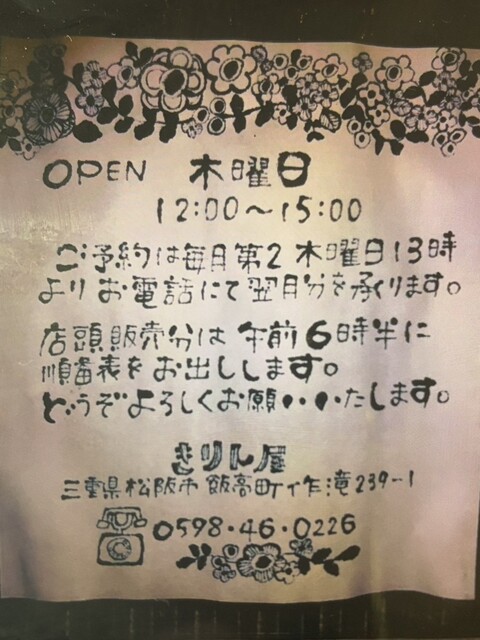 OPEN 木曜日
12:00～15:00
ご予約は毎月第2木曜日13時
よりお電話にて翌月分を承ります。
店頭販売分は午前6時半に
順番表をお出しします。
どうぞよろしくお願いいたします。
きりん屋
三重県松阪市飯高町作滝239-1
0598・46・0226